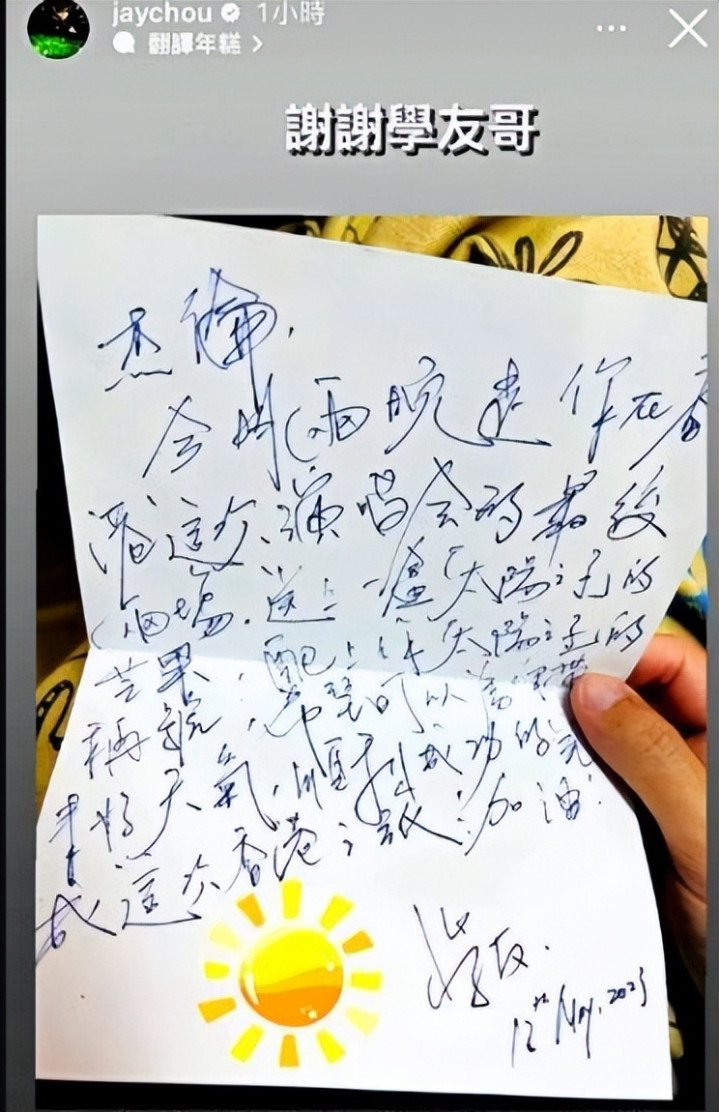 jaychou 1小時
翻譯年糕
謝謝學友哥
杰倫,
今明兩晚是你在香
港這次演唱会的最後
兩場.送上一盒「太陽之子」的
苹果,配上你太陽之子的
稱號,希望可以為你帶
來好天氣,順利成功的完
成這次香港之旅!加油!
學友.
12th May, 2023